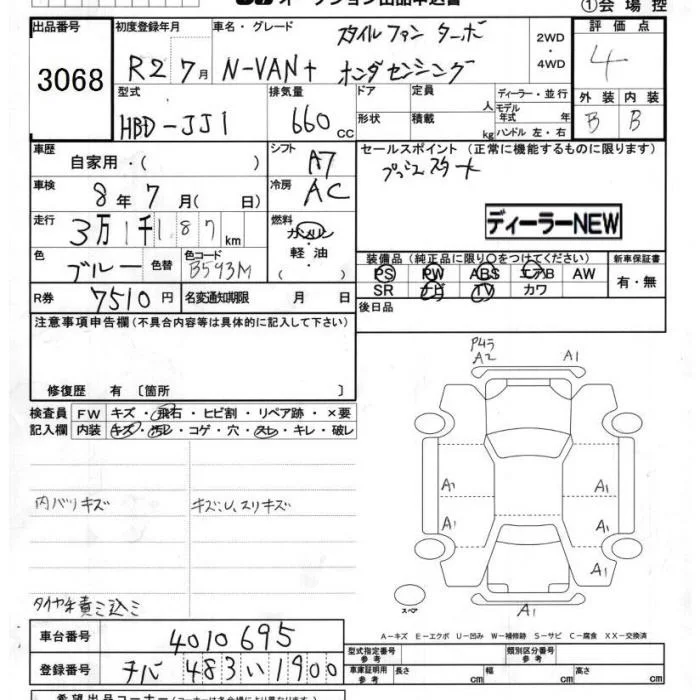 出品番号 初度登録年月 車名・グレード スタイルファン ターボ 2WD ・ 4WD 評価点
①会場控
3068 R2 7月 N-VAN+ ホンダセンシング 4
型式 HBD-JJ1 排気量 660 cc ドア 定員 人 ディーラー・並行 外装 内装
形状 積載 kg モデル年式 年 ハンドル 左・右 B B
車歴 自家用・( ) シフト A7 セールスポイント (正常に機能するものに限ります)
車検 8年 7月( 日) 冷房 AC
ディーラーNEW
走行 3万1千187km 燃料 ガソリン・軽油・( )
色 ブルー 色替 色コード B593M 装備品(純正品に限り○をつけてください) 新車保証書
PS PW ABS エアB AW 有・無
SR ナビ TV カワ
R券 7510円 名変通知期限 月 日 後日品
注意事項申告欄(不具合内容等は具体的に記入して下さい)
修復歴 有 〔箇所 〕
検査員記入欄 FW キズ・飛石・ヒビ割・リペア跡・×要
内装 キズ・汚レ・コゲ・穴・スレ・キレ・破レ
内バリキズ キズ、
A2 A1
A1 A1
A1 A1
A1
スペア
A1
A-キズ E-エクボ U-凹み W-補修跡 S-サビ C-腐食 XX-交換済
車台番号 4010695
登録番号 チバ 483 い 1900
型式指定番号 参考 類別区分番号 参考
車庫証明用 参考 長さ cm 幅 cm 高さ cm
希望出品コーナー